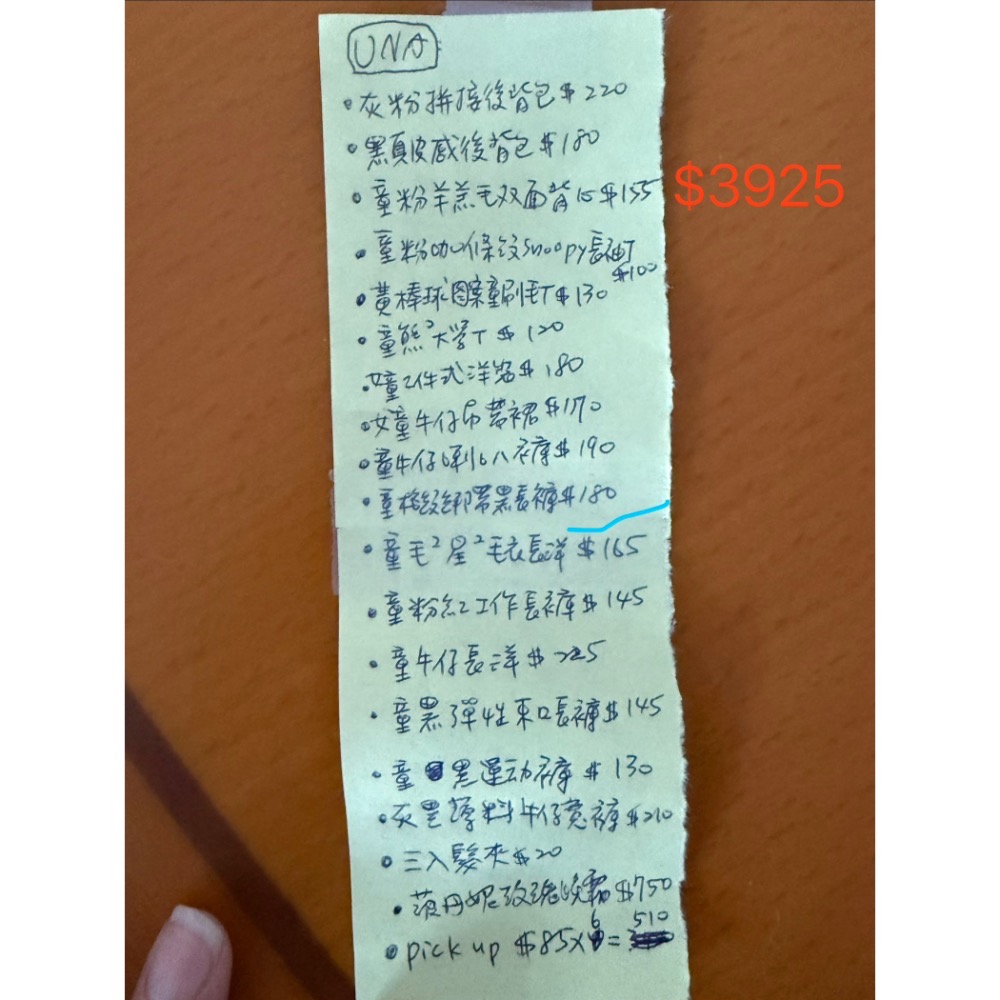 UNA
• 灰粉拼接後背包 $220
• 黑真皮感後背包 $180
$3925
• 童粉羊羔毛双面背心 $155
• 童粉咖條紋Snoopy長袖T
$100
• 黃棒球圖案童刷毛T $130
• 童熊²大學T $120
• 女童2件式洋 $180
• 女童牛仔吊帶裙 $170
• 童牛仔喇叭褲 $190
• 童格紋綁帶黑長褲 $180
• 童毛²星²毛衣長洋 $165
• 童粉紅工作長褲 $145
• 童牛仔長洋 $225
• 童黑彈性束口長褲 $145
• 童黑運动褲 $130
• 灰黑薄料牛仔寬褲 $210
• 三入髮夾 $20
• 蒂丹妮玫瑰晚霜 $750
• pick up $85x6 = 510